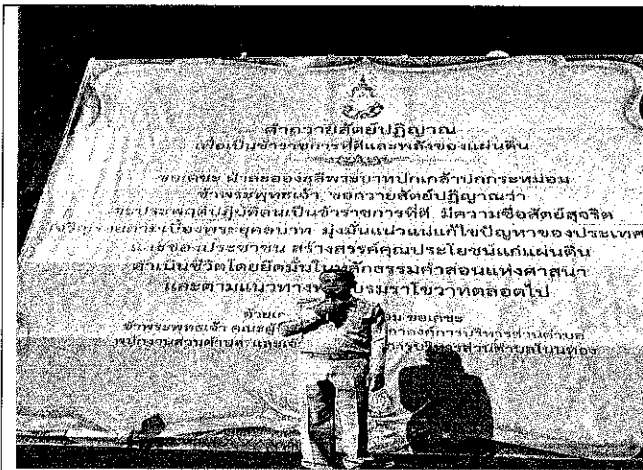 คำถวายสัตย์ปฏิญาณ
เพื่อเป็นข้าราชการที่ดีและพลังของแผ่นดิน
ขอเดชะ ฝ่าละอองธุลีพระบาทปกเกล้าปกกระหม่อม
ข้าพระพุทธเจ้า ขอถวายสัตย์ปฏิญาณว่า
จะประพฤติปฏิบัติตนเป็นข้าราชการที่ดี มีความซื่อสัตย์สุจริต
เบื้องพระยุคลบาท มุ่งมั่นแน่วแน่แก้ไขปัญหาของประเทศ
และของประชาชน สร้างสรรค์คุณประโยชน์แก่แผ่นดิน
ดำเนินชีวิตโดยยึดมั่นในหลักธรรมคำสอนแห่งศาสนา
และตามแนวทางพระบรมราโชวาทตลอดไป
ด้วย ขอเดชะ
ข้าพระพุทธเจ้า คณะผู้ องค์การบริหารส่วนตำบล
พนักงานส่วนตำบล และ การบริหารส่วนตำบล